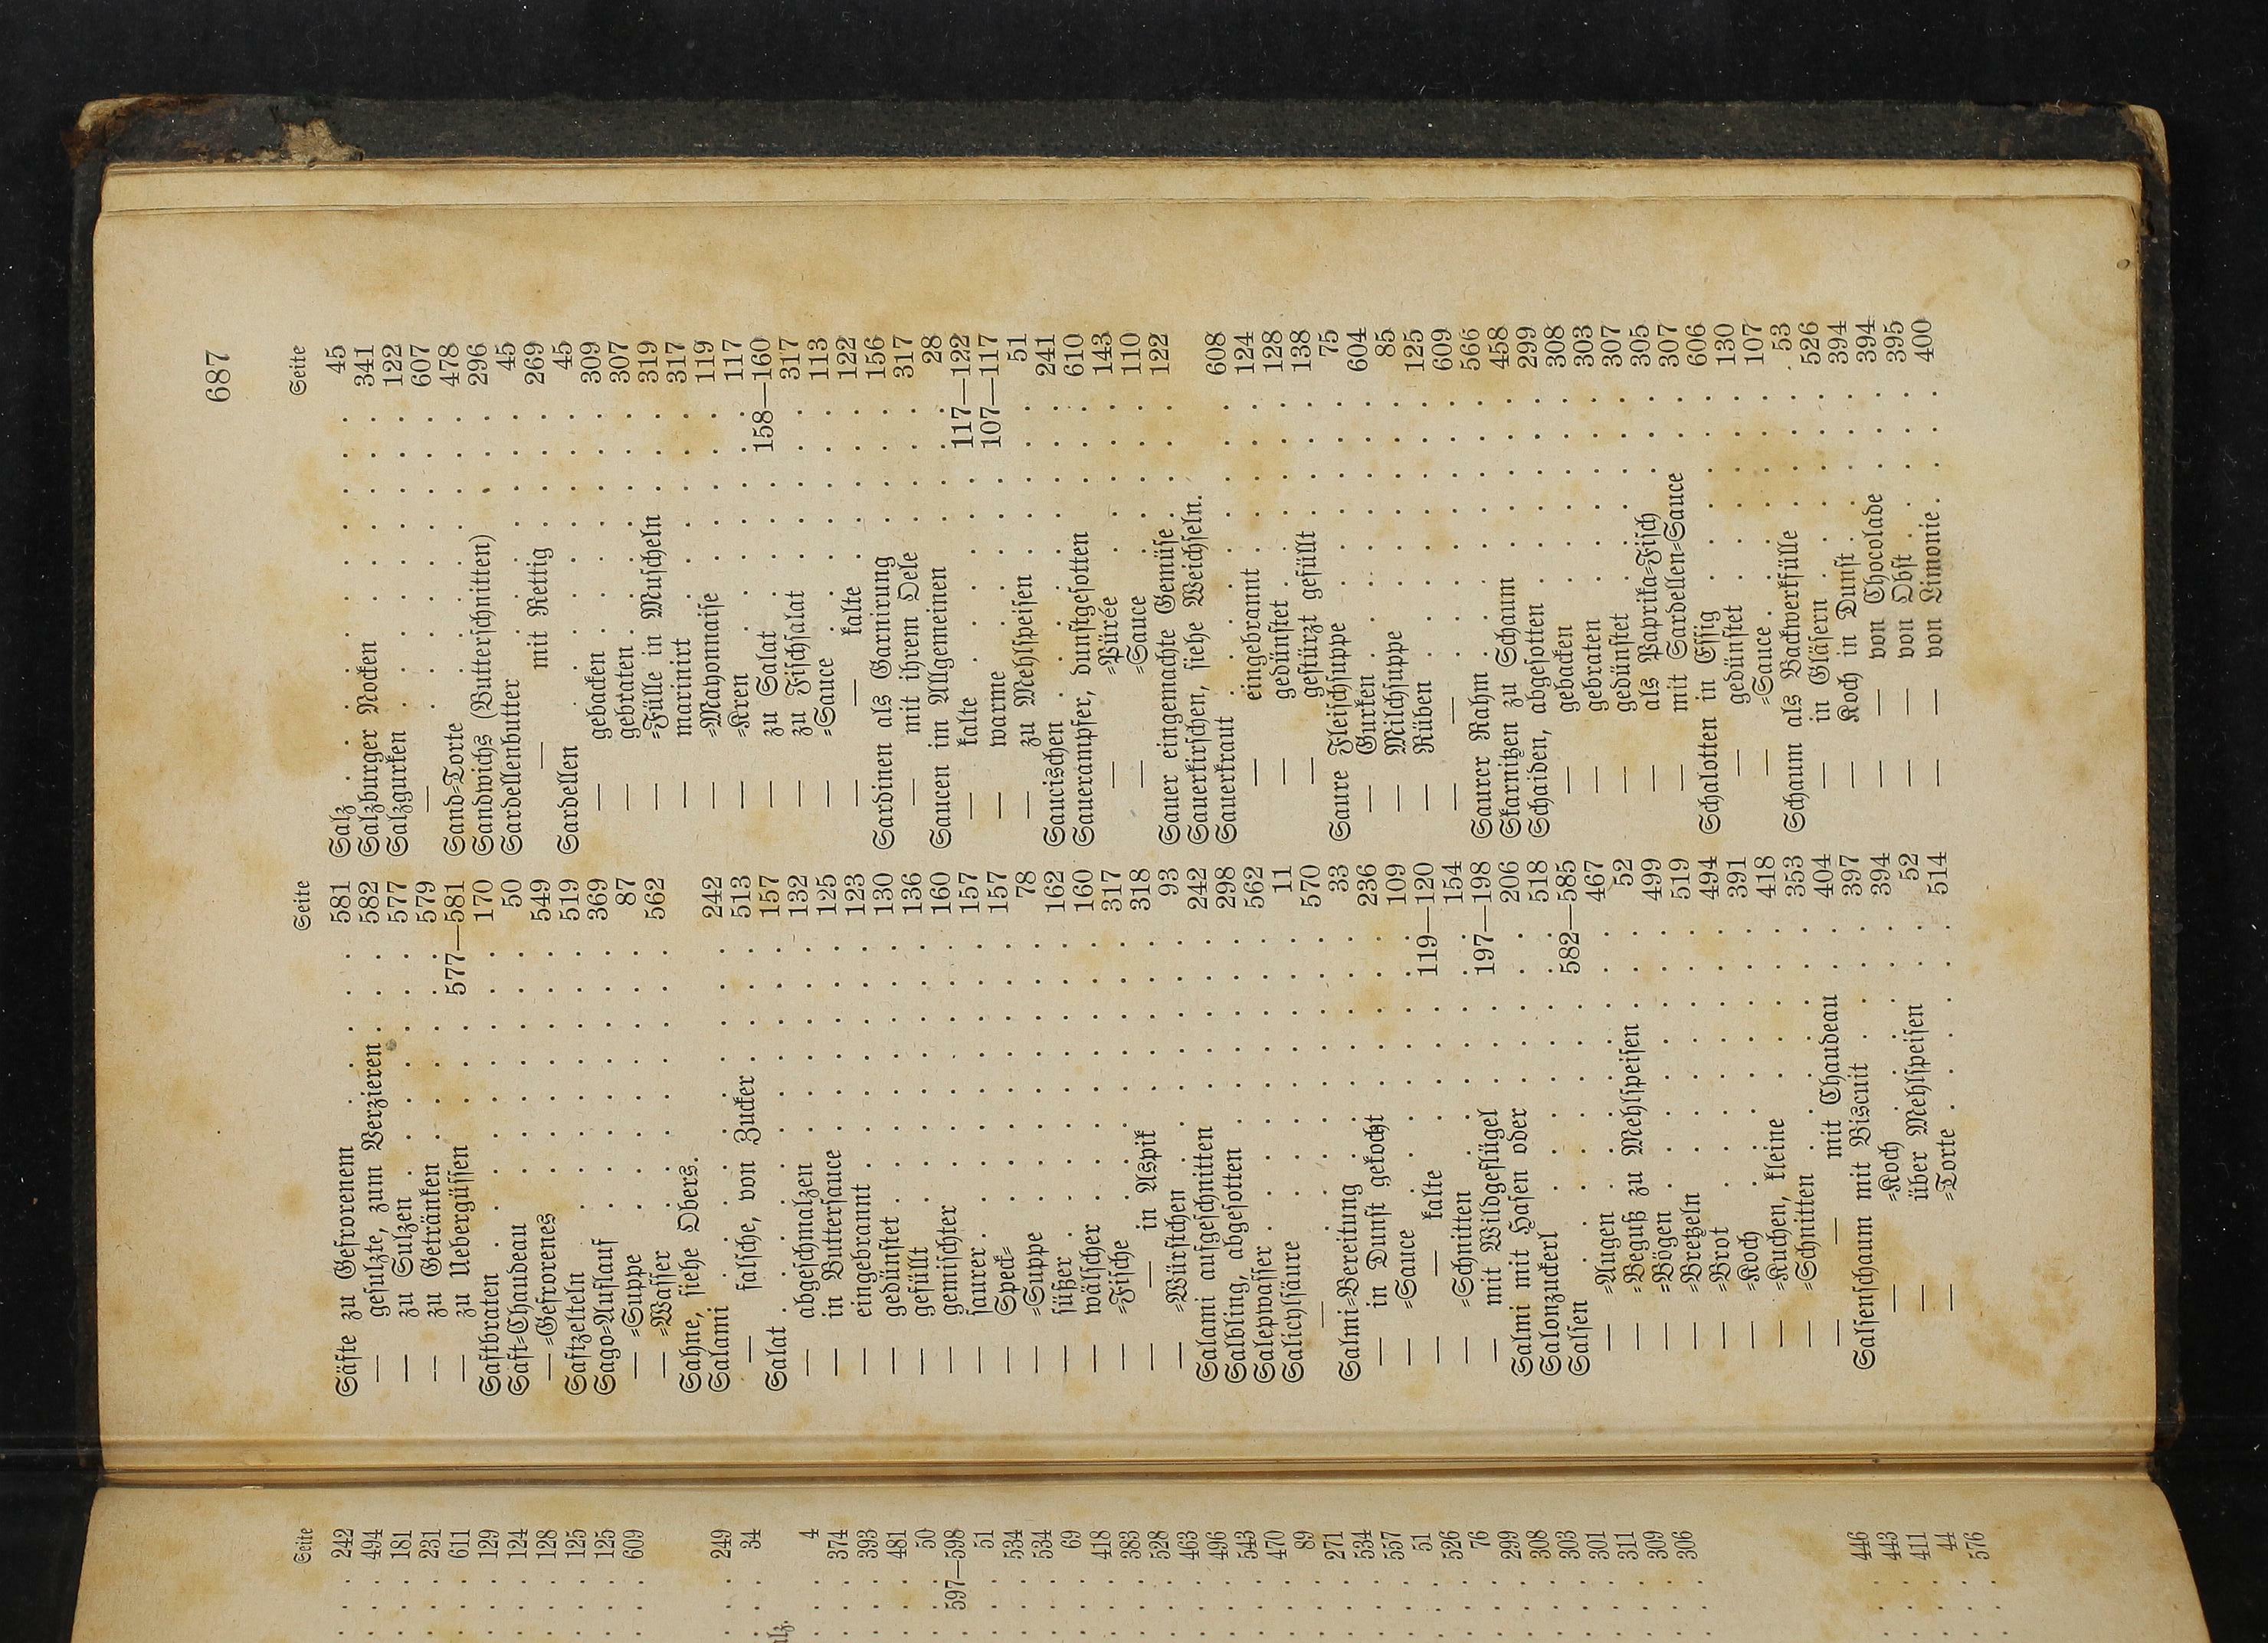 687
Seite
Säfte zu Gefrorenem . . . . . 581
— gesulzte, zum Verzieren . . . 582
— zu Sulzen . . . . . 577
— zu Getränken . . . . . 579
— zu Uebergüssen . . . . 577—581
Saftbraten . . . . . 170
Saft=Chaudeau . . . . . 50
— =Gefrorenes . . . . . 549
Saftzelteln . . . . . 519
Sago=Auflauf . . . . . 369
— =Suppe . . . . . 87
— =Wasser . . . . . 562
Sahne, siehe Obers.
Salami . . . . . 242
— falsche, von Zucker . . . . 513
Salat . . . . . 157
— abgeschmalzen . . . . . 132
— in Buttersauce . . . . . 125
— eingebrannt . . . . . 123
— gedünstet . . . . . 130
— gefüllt . . . . . 136
— gemischter . . . . . 160
— saurer . . . . . 157
— Speck= . . . . . 157
— =Suppe . . . . . 78
— süßer . . . . . 162
— wälscher . . . . . 160
— =Fische . . . . . 317
— — in Aspik . . . . . 318
— =Würstchen . . . . . 93
Salami aufgeschnitten . . . . . 242
Salbling, abgesotten . . . . . 298
Salepwasser . . . . . 562
Salichlsäure . . . . . 11
— . . . . . 570
Salmi=Bereitung . . . . . 33
— in Dunst gekocht . . . . . 236
— =Sauce . . . . . 109
— — kalte . . . . 119—120
— =Schnitten . . . . . 154
— mit Wildgeflügel . . . . 197—198
Salmi mit Hasen oder . . . . . 206
Salonzuckerl . . . . . 518
Salsen . . . . . 582—585
— =Augen . . . . . 467
— =Beguß zu Mehlspeisen . . . . 52
— =Bögen . . . . . 499
— =Bretzeln . . . . . 519
— =Brot . . . . . 494
— =Koch . . . . . 391
— =Kuchen, kleine . . . . . 418
— =Schnitten . . . . . 353
— — mit Chaudeau . . . . 404
Salsenschaum mit Biscuit . . . . 397
— =Koch . . . . . 394
— über Mehlspeisen . . . . . 52
— =Torte . . . . . 514
Seite
Salz . . . . . 45
Salzburger Nocken . . . . . 341
Salzgurken . . . . . 122
— . . . . . 607
Sand=Torte . . . . . 478
Sandwichs (Butterschnitten) . . . . 296
Sardellenbutter . . . . . 45
— mit Rettig . . . . 269
Sardellen . . . . . 45
— gebacken . . . . . 309
— gebraten . . . . . 307
— =Fülle in Muscheln . . . . 319
— marinirt . . . . . 317
— =Mayonnaise . . . . . 119
— =Kren . . . . . 117
— zu Salat . . . . 158—160
— zu Fischsalat . . . . . 317
— =Sauce . . . . . 113
— — kalte . . . . . 122
Sardinen als Garnirung . . . . 156
— mit ihrem Oele . . . . 317
Saucen im Allgemeinen . . . . 28
— kalte . . . . 117—122
— warme . . . . 107—117
— zu Mehlspeisen . . . . 51
Saucischen . . . . . 241
Sauerampfer, dunstgesotten . . . . 610
— =Pürée . . . . . 143
— =Sauce . . . . . 110
Sauer eingemachte Gemüse . . . . 122
Sauerkirschen, siehe Weichseln.
Sauerkraut . . . . . 608
— eingebrannt . . . . . 124
— gedünstet . . . . . 128
— gestürzt gefüllt . . . . 138
Saure Fleischsuppe . . . . . 75
— Gurken . . . . . 604
— Milchsuppe . . . . . 85
— Rüben . . . . . 125
— — . . . . . 609
Saurer Rahm . . . . . 566
Skarnitzen zu Schaum . . . . 458
Schaiden, abgesotten . . . . . 299
— gebacken . . . . . 308
— gebraten . . . . . 303
— gedünstet . . . . . 307
— als Paprika=Fisch . . . . 305
— mit Sardellen=Sauce . . . . 307
Schalotten in Essig . . . . . 606
— gedünstet . . . . . 130
— =Sauce . . . . . 107
Schaum als Backwerkfülle . . . . 53
— in Gläsern . . . . . 526
— Koch in Dunst . . . . . 394
— — von Chocolade . . . . 394
— — von Obst . . . . . 395
— — von Limonie . . . . . 400
Seite
242
494
181
231
611
129
124
128
125
125
609
249
34
4
374
393
481
50
597—598
51
534
534
69
418
383
528
463
496
543
470
89
271
534
557
51
526
76
299
308
303
301
311
309
306
446
443
411
44
576